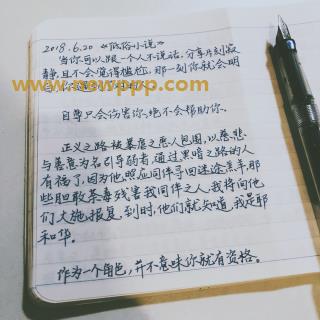 2018.6.20 《低俗小说》
当你可以跟一个人不说话,分享片刻寂
静,且不会觉得尴尬,那一刻你就会明
www.nowppp.com
自卑只会伤害你,绝不会帮助你。
正义之路被暴虐之恶人包围,以慈悲
与善意为名引导弱者,通过黑暗之路的人
有福了,因为他照应同伴寻回迷途羔羊,那
些胆敢荼毒残害我同伴之人,我将向他
们大施报复,到时,他们就知道,我是耶
和华。
作为一个角色,并不意味你就有资格。